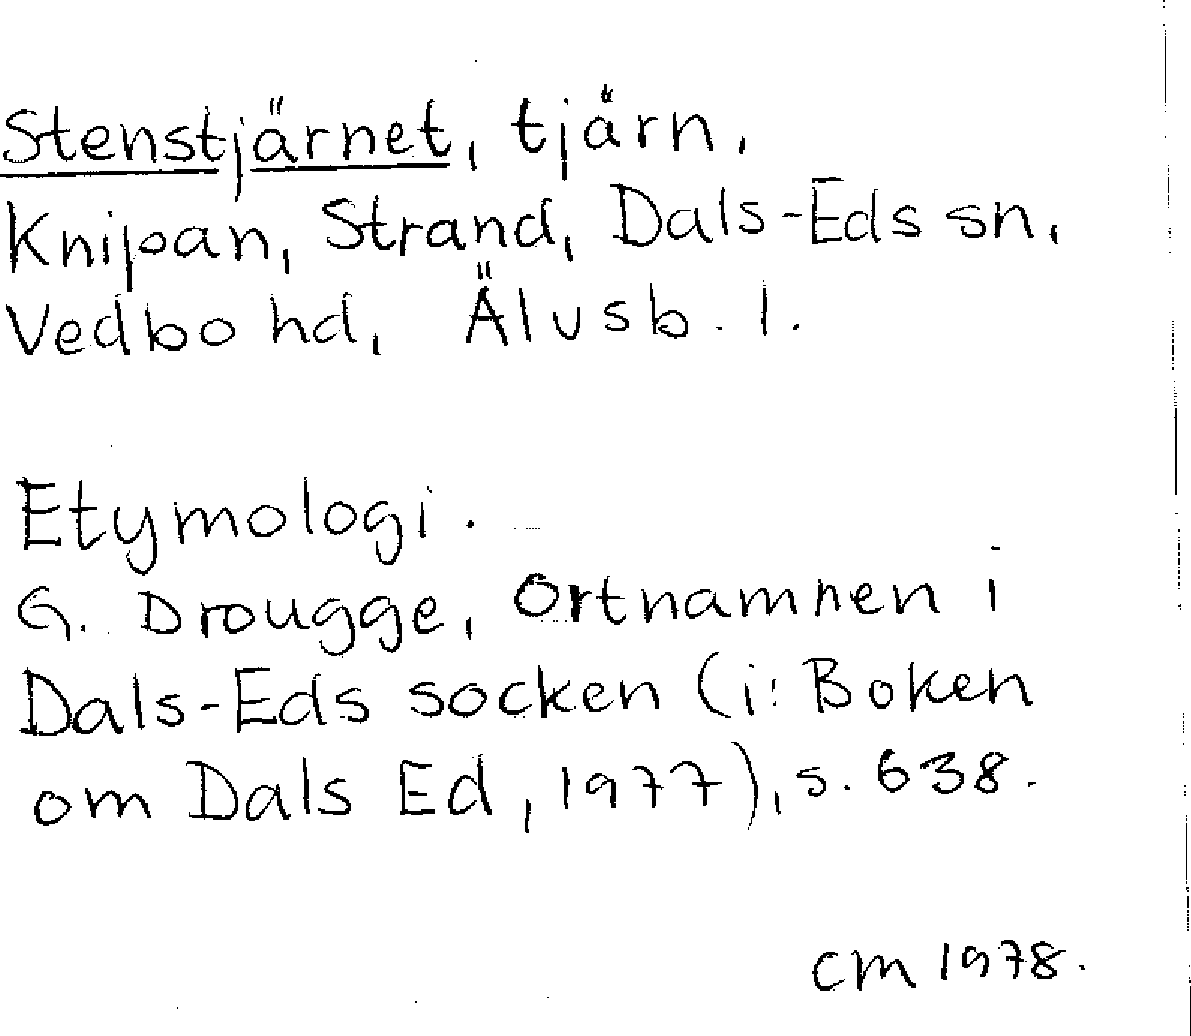 Stenstjärnet, tjärn,
Knipan, Strand, Dals-Eds sn,
Vedbo hd, Älvsb. l.
Etymologi.
G. Drougge, Ortnamnen i
Dals-Eds socken (i: Boken
om Dals Ed, 1977), s. 638.
CM 1978.